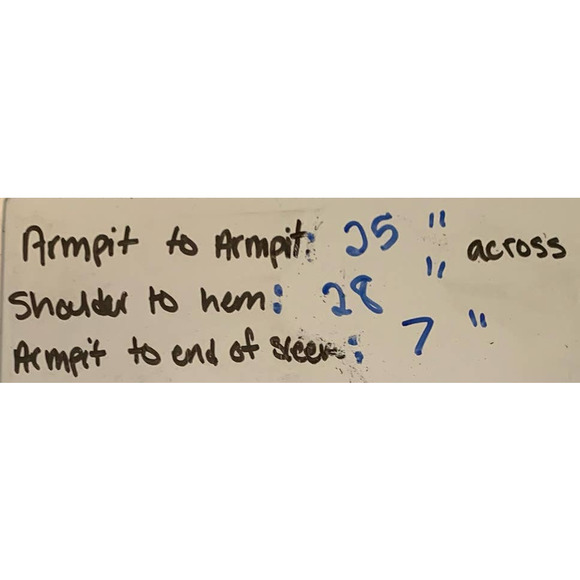 Armpit to Armpit: 25 " across
Shoulder to hem: 28 "
Armpit to end of sleeve: 7 "